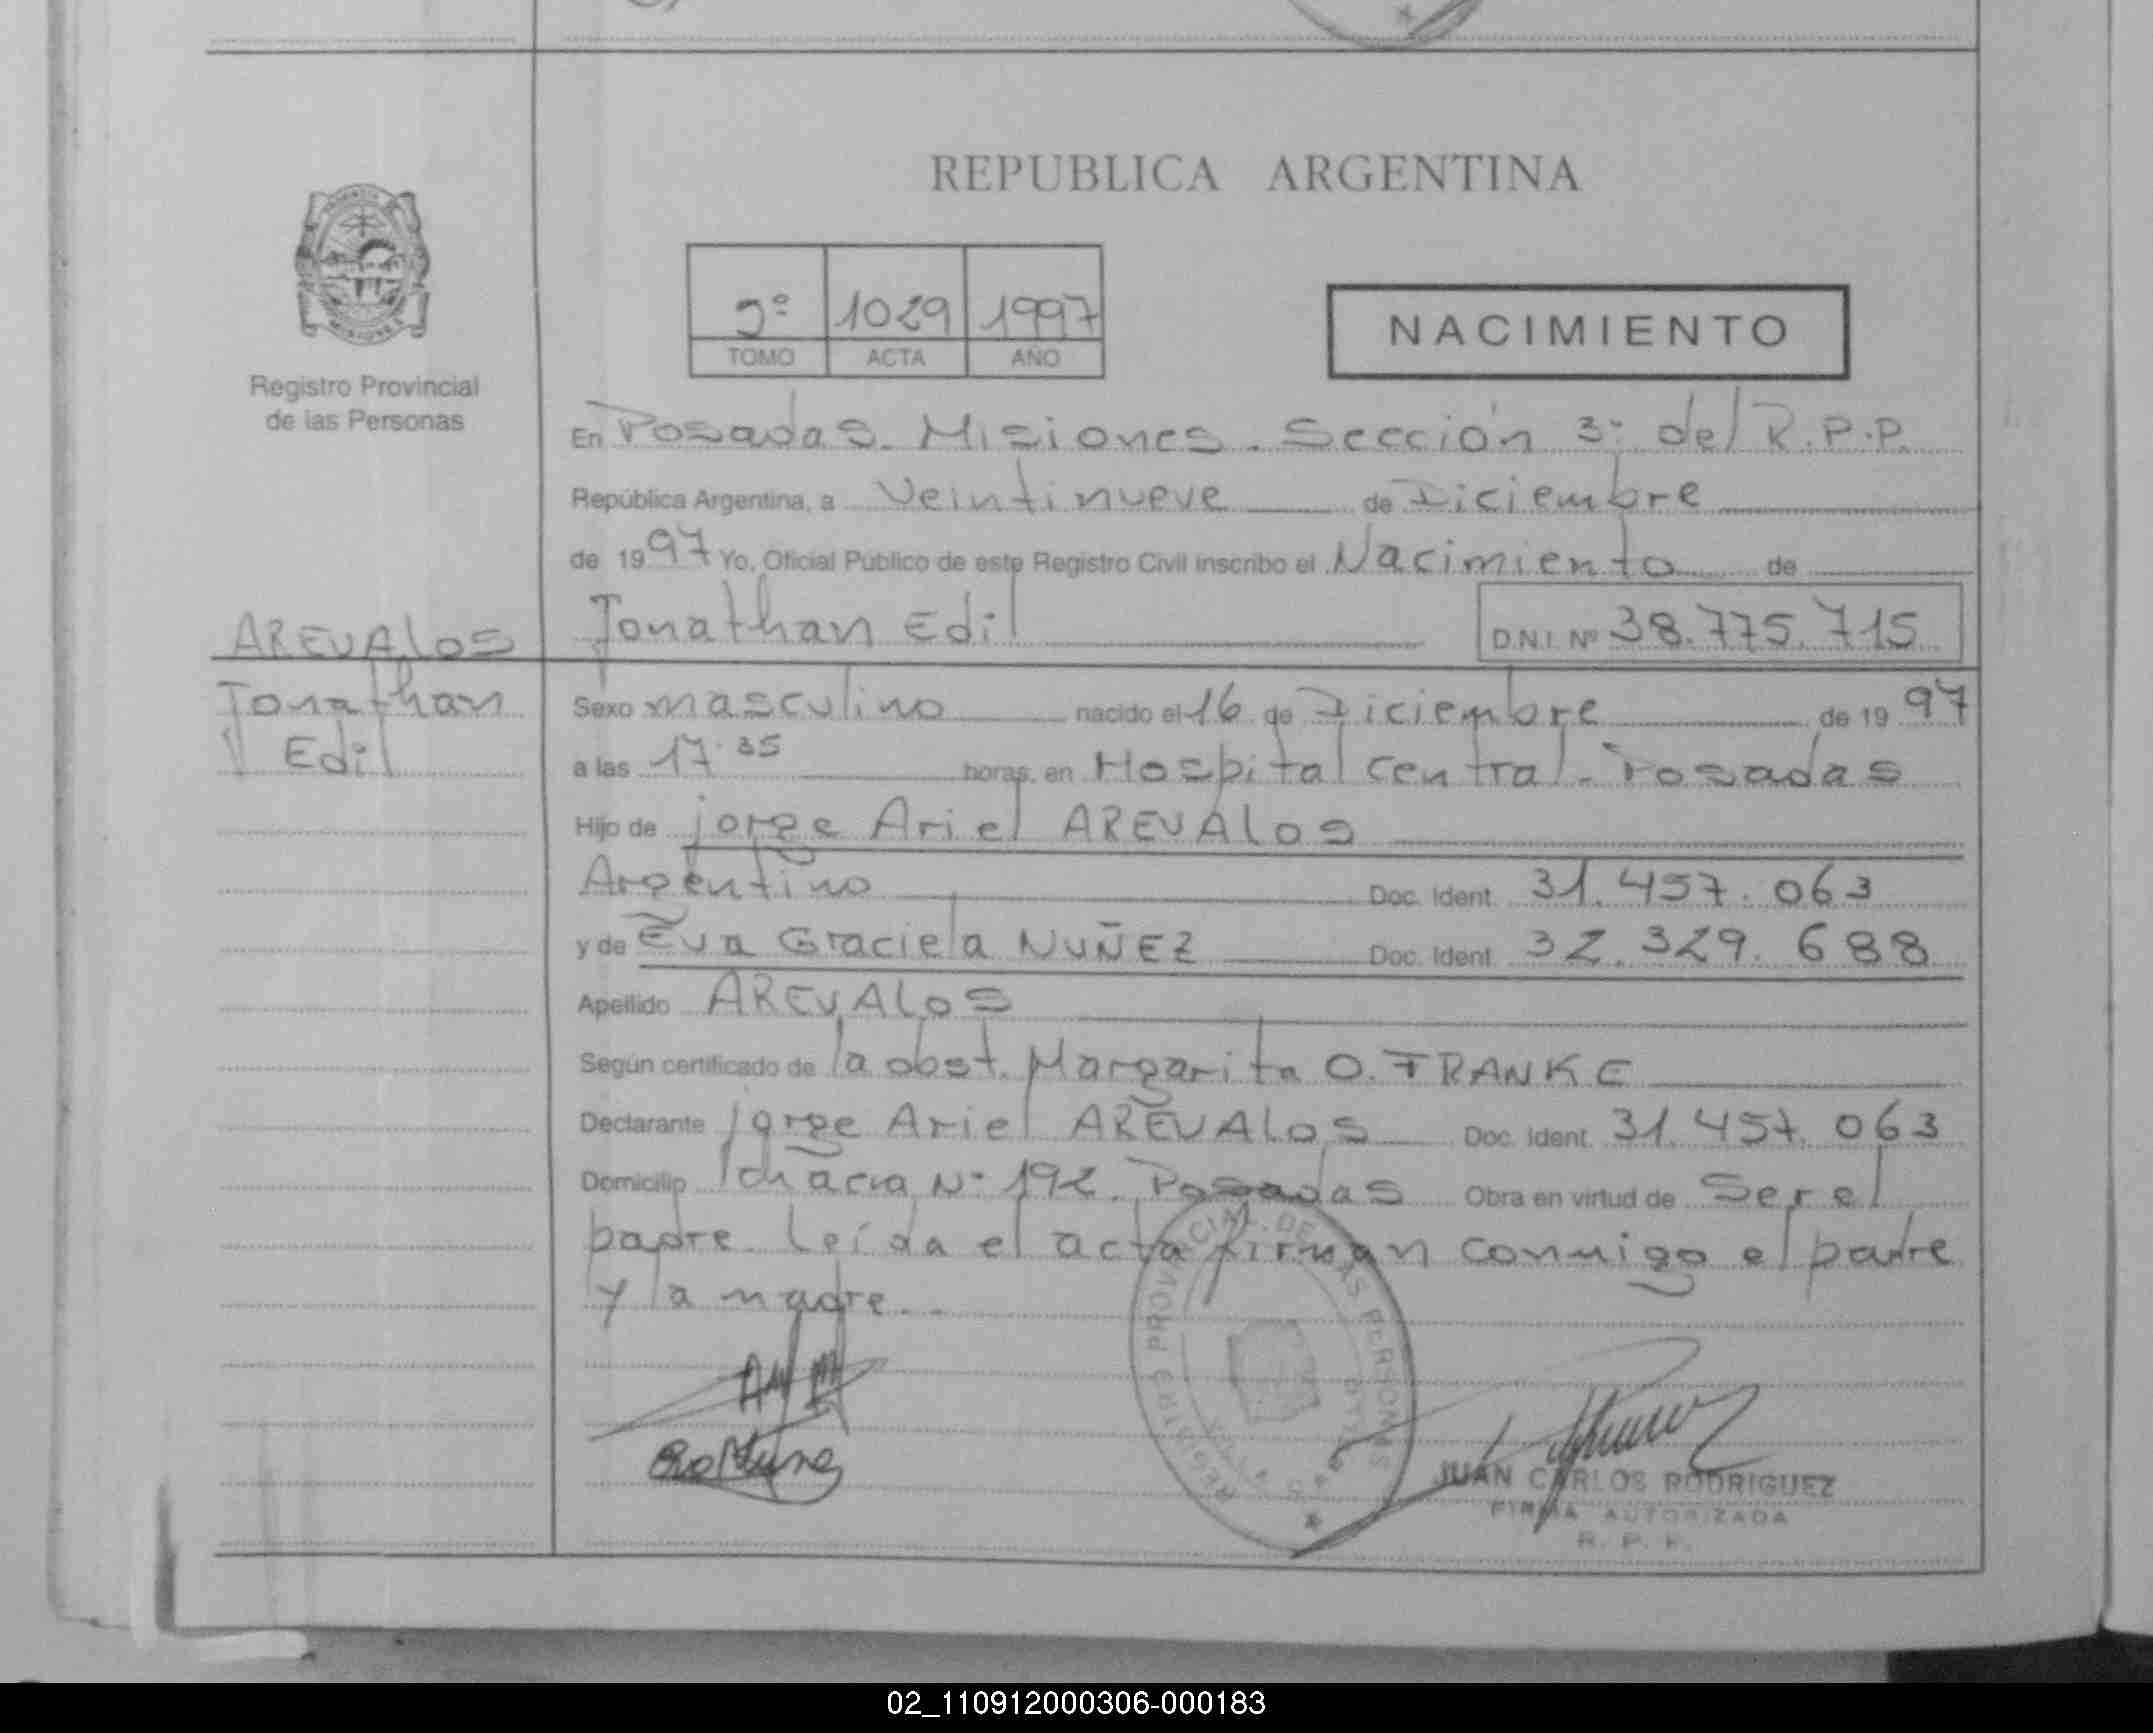 REPUBLICA ARGENTINA
1029 1997
TOMO ACTA AÑO
NACIMIENTO
Registro Provincial
de las Personas
En Posadas. Misiones. Sección 3º del R.P.P.
República Argentina, a Veintinueve de Diciembre
de 1997 Yo, Oficial Público de este Registro Civil inscribo el Nacimiento de
Jonathan Edil D.N.I. Nº 38.775.715
AREVALOS
Jonathan
Edil
Sexo masculino nacido el 16 de Diciembre de 1997
a las 17.35 horas, en Hospital Central. Posadas
Hijo de Jorge Ariel AREVALOS
Argentino Doc. Ident. 31.457.063
y de Eva Graciela NUÑEZ Doc. Ident. 32.329.688
Apellido AREVALOS
Según certificado de la obst. Margarita O. FRANKE
Declarante Jorge Ariel AREVALOS Doc. Ident. 31.457.063
Domicilio chacra Nº 192. Posadas Obra en virtud de Ser el
padre. Leída el acta firman conmigo el padre
y la madre..
REGISTRO PROVINCIAL DE LAS PERSONAS
JUAN CARLOS RODRIGUEZ
FIRMA AUTORIZADA
R. P. P.
02_110912000306-000183